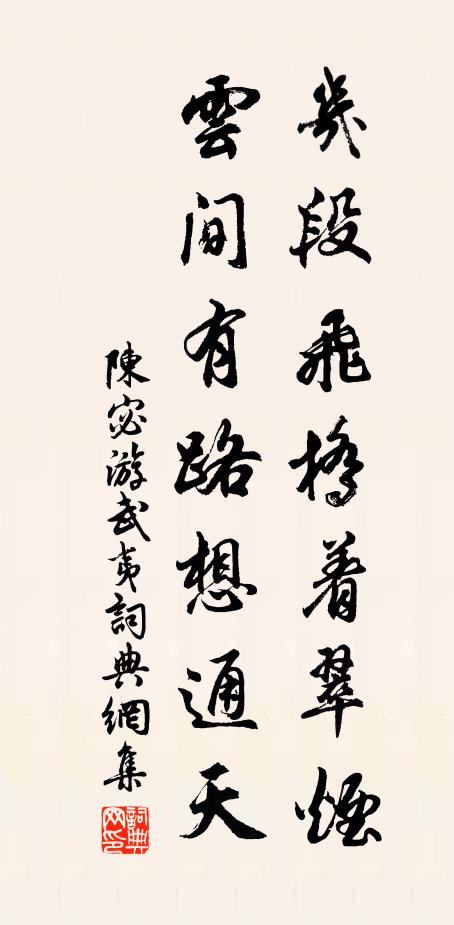 幾段飛橋着翠煙
雲間有路想通天
陳宓游武夷詞典網集
詞典網印